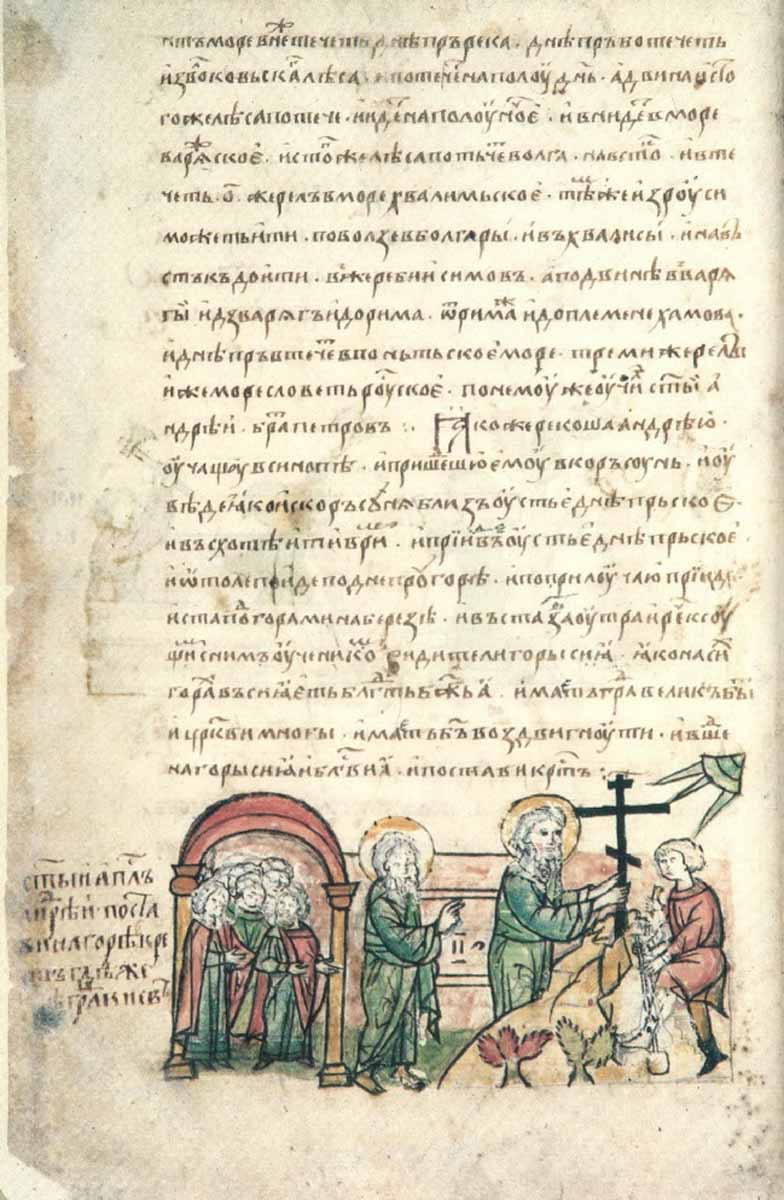 нтъ море внеже течеть днѣпръ река · днѣпръ бо течеть
из воковьска лѣса и потечен на полоу днь · а двина ис то
го же лѣса потече · и идет на полоуночье · и внидет в море
варяское · ис того же лѣса потьче волга · на въсто · и вте
четь · о҃ · жерелъ в море хвалимьское · тѣм же из роуси
можеть ити · по волзе в болгары · и въ хвалисы · и на въ
стъкъ доити · в жеребии симовъ · а по двинѣ в варя
гы и дз варягъ и до рима · ѿ рима и до племене хамова ·
и днѣпръ втечет в поньтьское море · треми жерелы
иже море словеть роуское · по немоу же оучи сты а
ндрѣй · брат петровъ :· Ꙗкоже рекоша андрѣю ·
оучащоу в синопѣ · и пришешю емоу в корьсоунь · и оу
вѣде ꙗко ис корьсоуня близъ оустье днѣпрьское ·
и въсхотѣ ити в рим · и прїиде въ оустье днѣпрьское ·
и ѿтоле поиде по днепроу горѣ · и по прилоучаю прїиде
и ста под горами на березѣ · и въстав заоутра и реч к соу
щим с ним оучеником видите ли горы сиꙗ ꙗко на сих
горах въсиꙗеть блгдть бжьꙗ · имать град великъ быт
и церкви многы · имать бъ воздвигноути · и вшед
на горы сиꙗ и блгви ꙗ · и постави крстъ :
сты апслъ
андрѣй поста
ви на горѣ кре
стъ гдѣ же
градъ киевъ